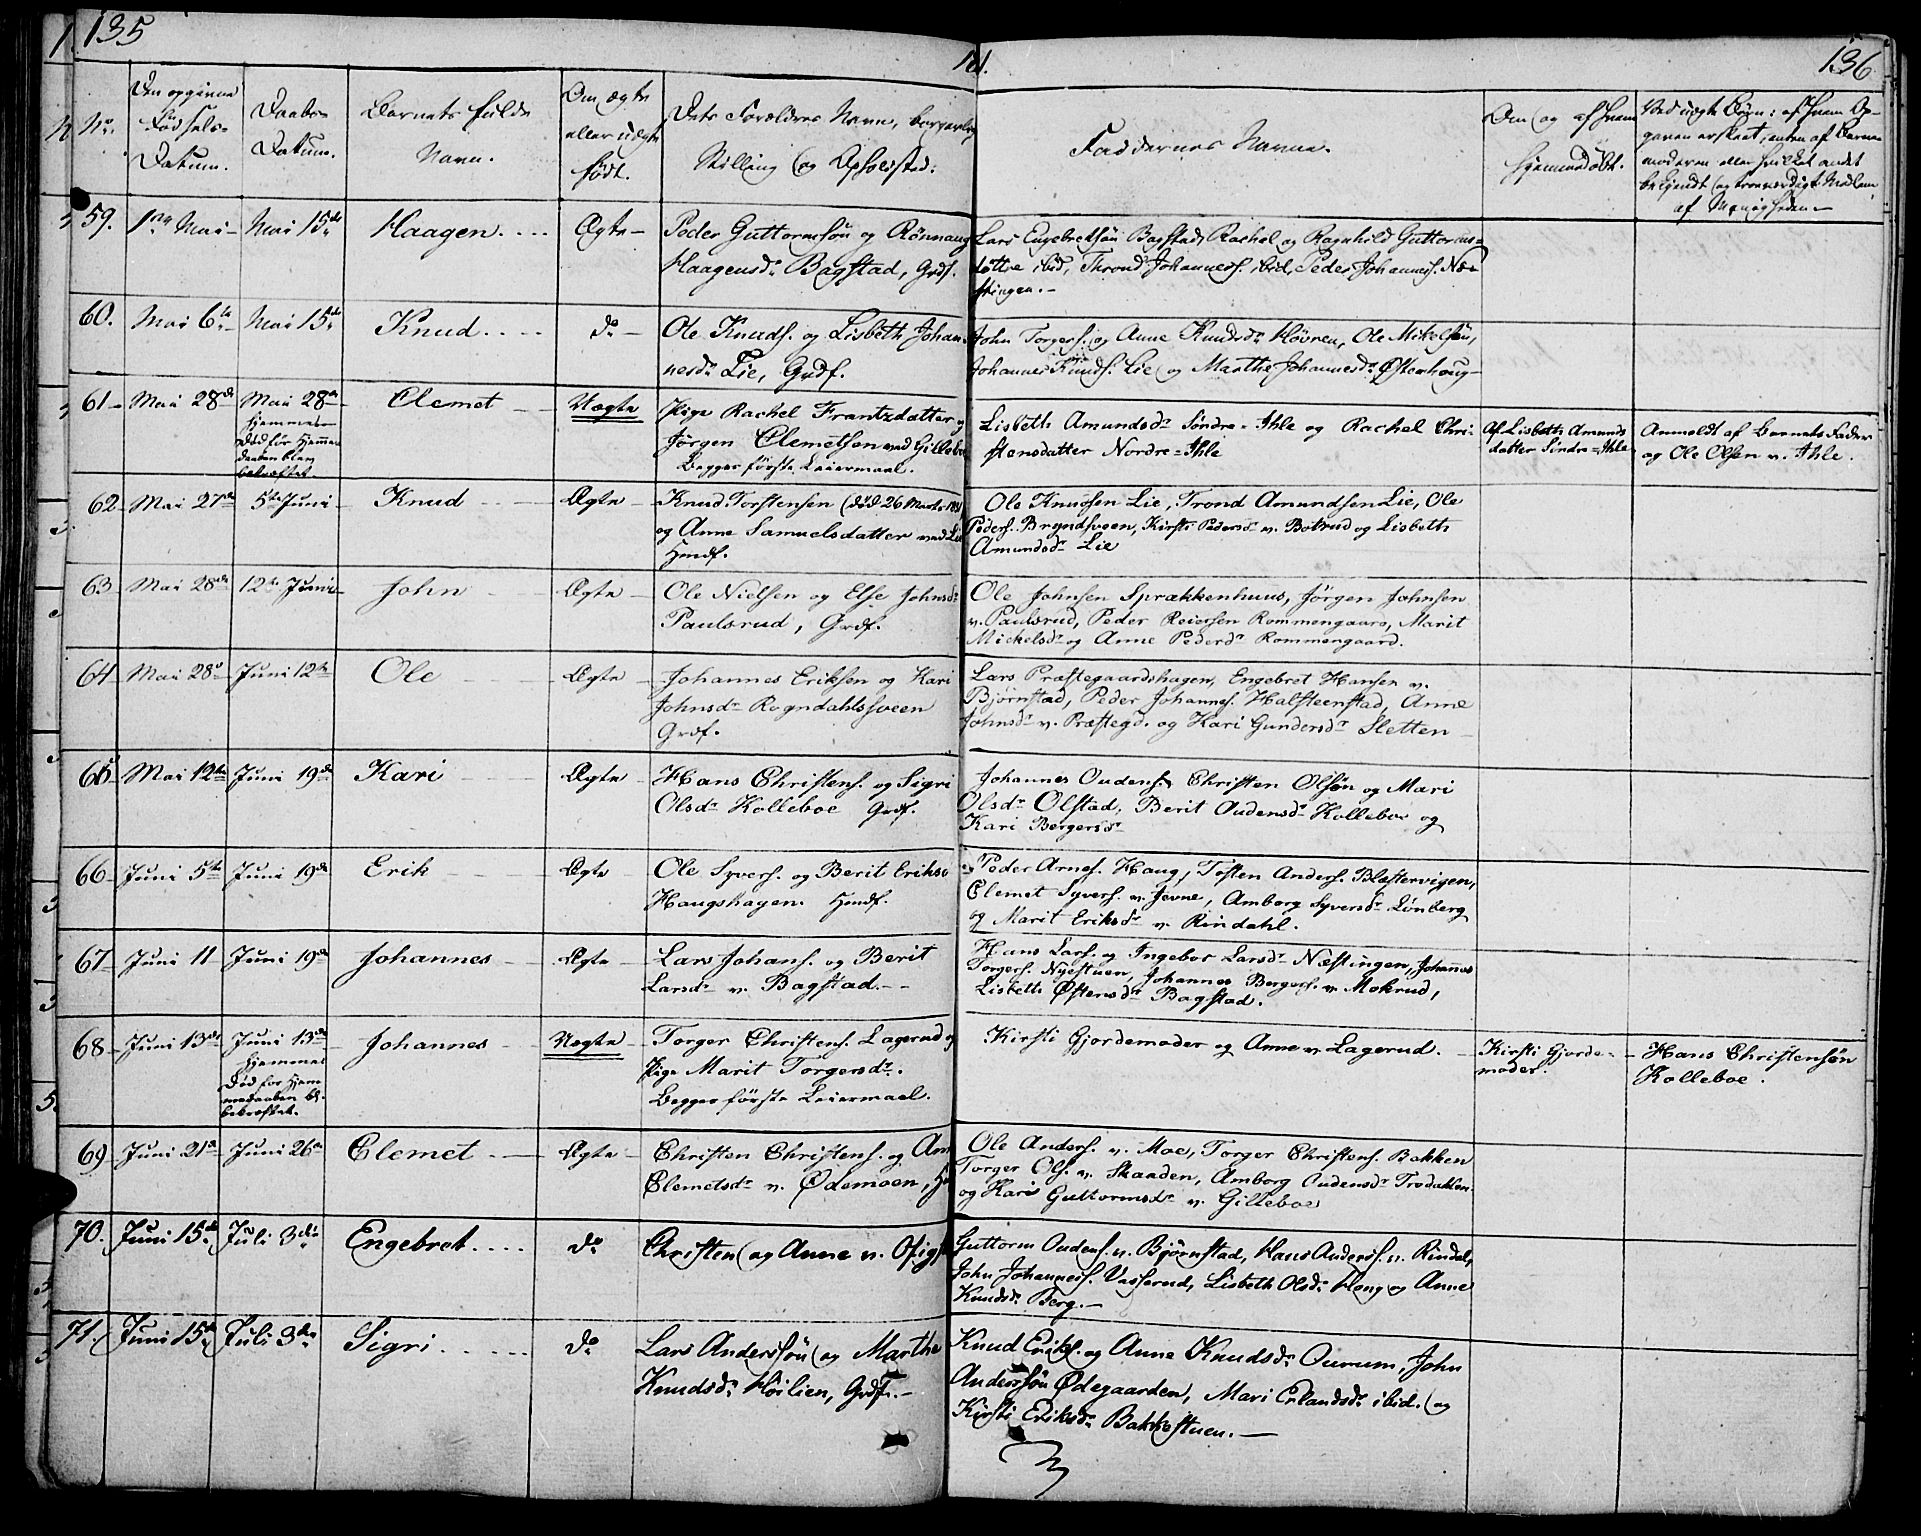 135
136
No.
Den opgivne
Fødsels-
Datum.
Daabs-
Datum.
Barnets fulde
Navn.
Om ægte
eller uægte
født.
Dets Forældres Navn, borgerlig
Stilling og Opholdsted.
Faddernes Navne.
Om og af hvem
hjemmedøbt.
Ved uægte Børn: af hvem Op-
gaven er skeet, enten af Barne-
moderen eller hvilket andet
bekjendt og troværdigt Medlem
af Menigheden.
59. 1ste Mai Mai 15de Haagen Ægte
Peder Guttormsøn og Rønnaug
Haagensdr. Bagstad, Grdf.
Lars Engebretsøn Bagstad, Rachel og Ragnhild Guttorms-
døttre ibid, Thrond Johanness. ibid, Peder Johanness. Næs-
stingen.
60. Mai 6te Mai 15de Knud do
Ole Knuds. og Lisbeth Johan-
nesdr. Lie, Grdf.
John Torgers. og Anne Knudsdr. Høvren, Ole Mikelsøn,
Johannes Knuds. Lie og Marthe Johannesdr. Østenhoug
61 Mai 28de Mai 28de
hjemme
Død før hjemme
daaben blev
bekræftet.
Clemet Uægte
Pige Rachel Frantzdatter og
Jørgen Clemetsen ved Gillebo
Begges første Leiermaal.
Lisbeth Amundsdr. Søndre-Ihle og Rachel Chri-
stensdatter Nordre-Ihle
Af Lisbeth Amunds
datter Søndre-Ihle
Anmeldt af Barnets Fader
og Ole Olsen v. Ihle.
62 Mai 27de 5te Juni Knud Ægte
Knud Torstensen (død 26 Marts
og Anne Samuelsdatter ved Lie
Hmdf.
Ole Knudsen Lie, Trond Amundsen Lie, Ole
Peders. Bryndsveen, Kirsti Pedersdr. v. Botrud og Lisbeth
Amundsdr. Lie
63 Mai 28de 12te Juni John Ægte
Ole Nielsen og Else Johnsdr.
Paulsrud, Grdf.
Ole Johnsen Sprækkenhuus, Jörgen Johnsen
v. Paulsrud, Peder Reiersen Rommengaard, Marit
Mickelsdr. og Anne Pedersdr. Rommengaard.
64 Mai 28de Juni 12te Ole Ægte
Johannes Eriksen og Kari
Johnsdr. Rogndahlssveen
Grdf.
Lars Præstegaardshagen, Engebret Hansen v.
Bjørnstad, Peder Johannes. Halsteenstad, Anne
Johnsdr. v. Præstegd. og Kari Gundersdr. Sletten
65 Mai 12te Juni 19de Kari Ægte
Hans Christens. og Sigri
Olsdr. Kolleboe Grdf.
Johannes Oudens. Christen Olsøn og Mari
Olsdr. Olstad, Berit Oudensdr. Kolleboe og
Kari Bergersdr.
66 Juni 5te Juni 19de Erik Ægte
Ole Syvers. og Berit Eriksd
Haugshagen. Hmdf.
Peder Arnes. Haug, Tosten Anders. Blæstervigen,
Clemet Syvers. v. Jevne, Amborg Syversdr. Lönberg
og Marit Eriksdr. v. Rindahl.
67 Juni 11 Juni 19de Johannes Ægte
Lars Johans. og Berit
Larsdr. v. Bagstad.
Hans Lars. og Ingebor Larsdr. Næstingen, Johannes
Torgers. Nyestuen, Johannes Bergers. v. Mokrud,
Lisbeth Østensdr. Bagstad.
68 Juni 13de Juni 13de
hjemme
Død før hjem-
medaaben bl.
bekræftet.
Johannes Uægte
Torger Christens. Lagerud og
Pige Marit Torgersdr.
Begges første Leiermaal.
Kirsti Gjordemoder og Anne v. Lagerud.
Kirsti Gjorde-
moder.
Hans Christensøn
Kolleboe.
69 Juni 21de Juni 26de Clemet Ægte
Christen Christens. og Am
Clemetsdr. v. Ødemoen, H
Ole Anders. v. Moe, Torger Christens. Bakken
Torger Ols. v. Skaaden, Amborg Oudensdr. Trodahlen
og Kari Guttormsdr. v. Gilleboe
70. Juni 15de Juli 3die Engebret do
Christen og Anne v. Ofigs
Guttorm Oudens. v. Bjørnstad, Hans Anderss. v. Rindal,
John Johanness. Vasserud, Lisbeth Olsdr. Houg og Anne
Knudsdr. Berg.
71. Juni 15de Juli 3die Sigri do
Lars Anderssøn og Marthe
Knudsdr. Høilien, Grdf.
Knud Eriks. og Anne Knudsdr. Ourum, John
Anderssøn Ødegaarden, Mari Erlandsdr. ibid. og
Kirsti Eriksdr. Bakkestuen.